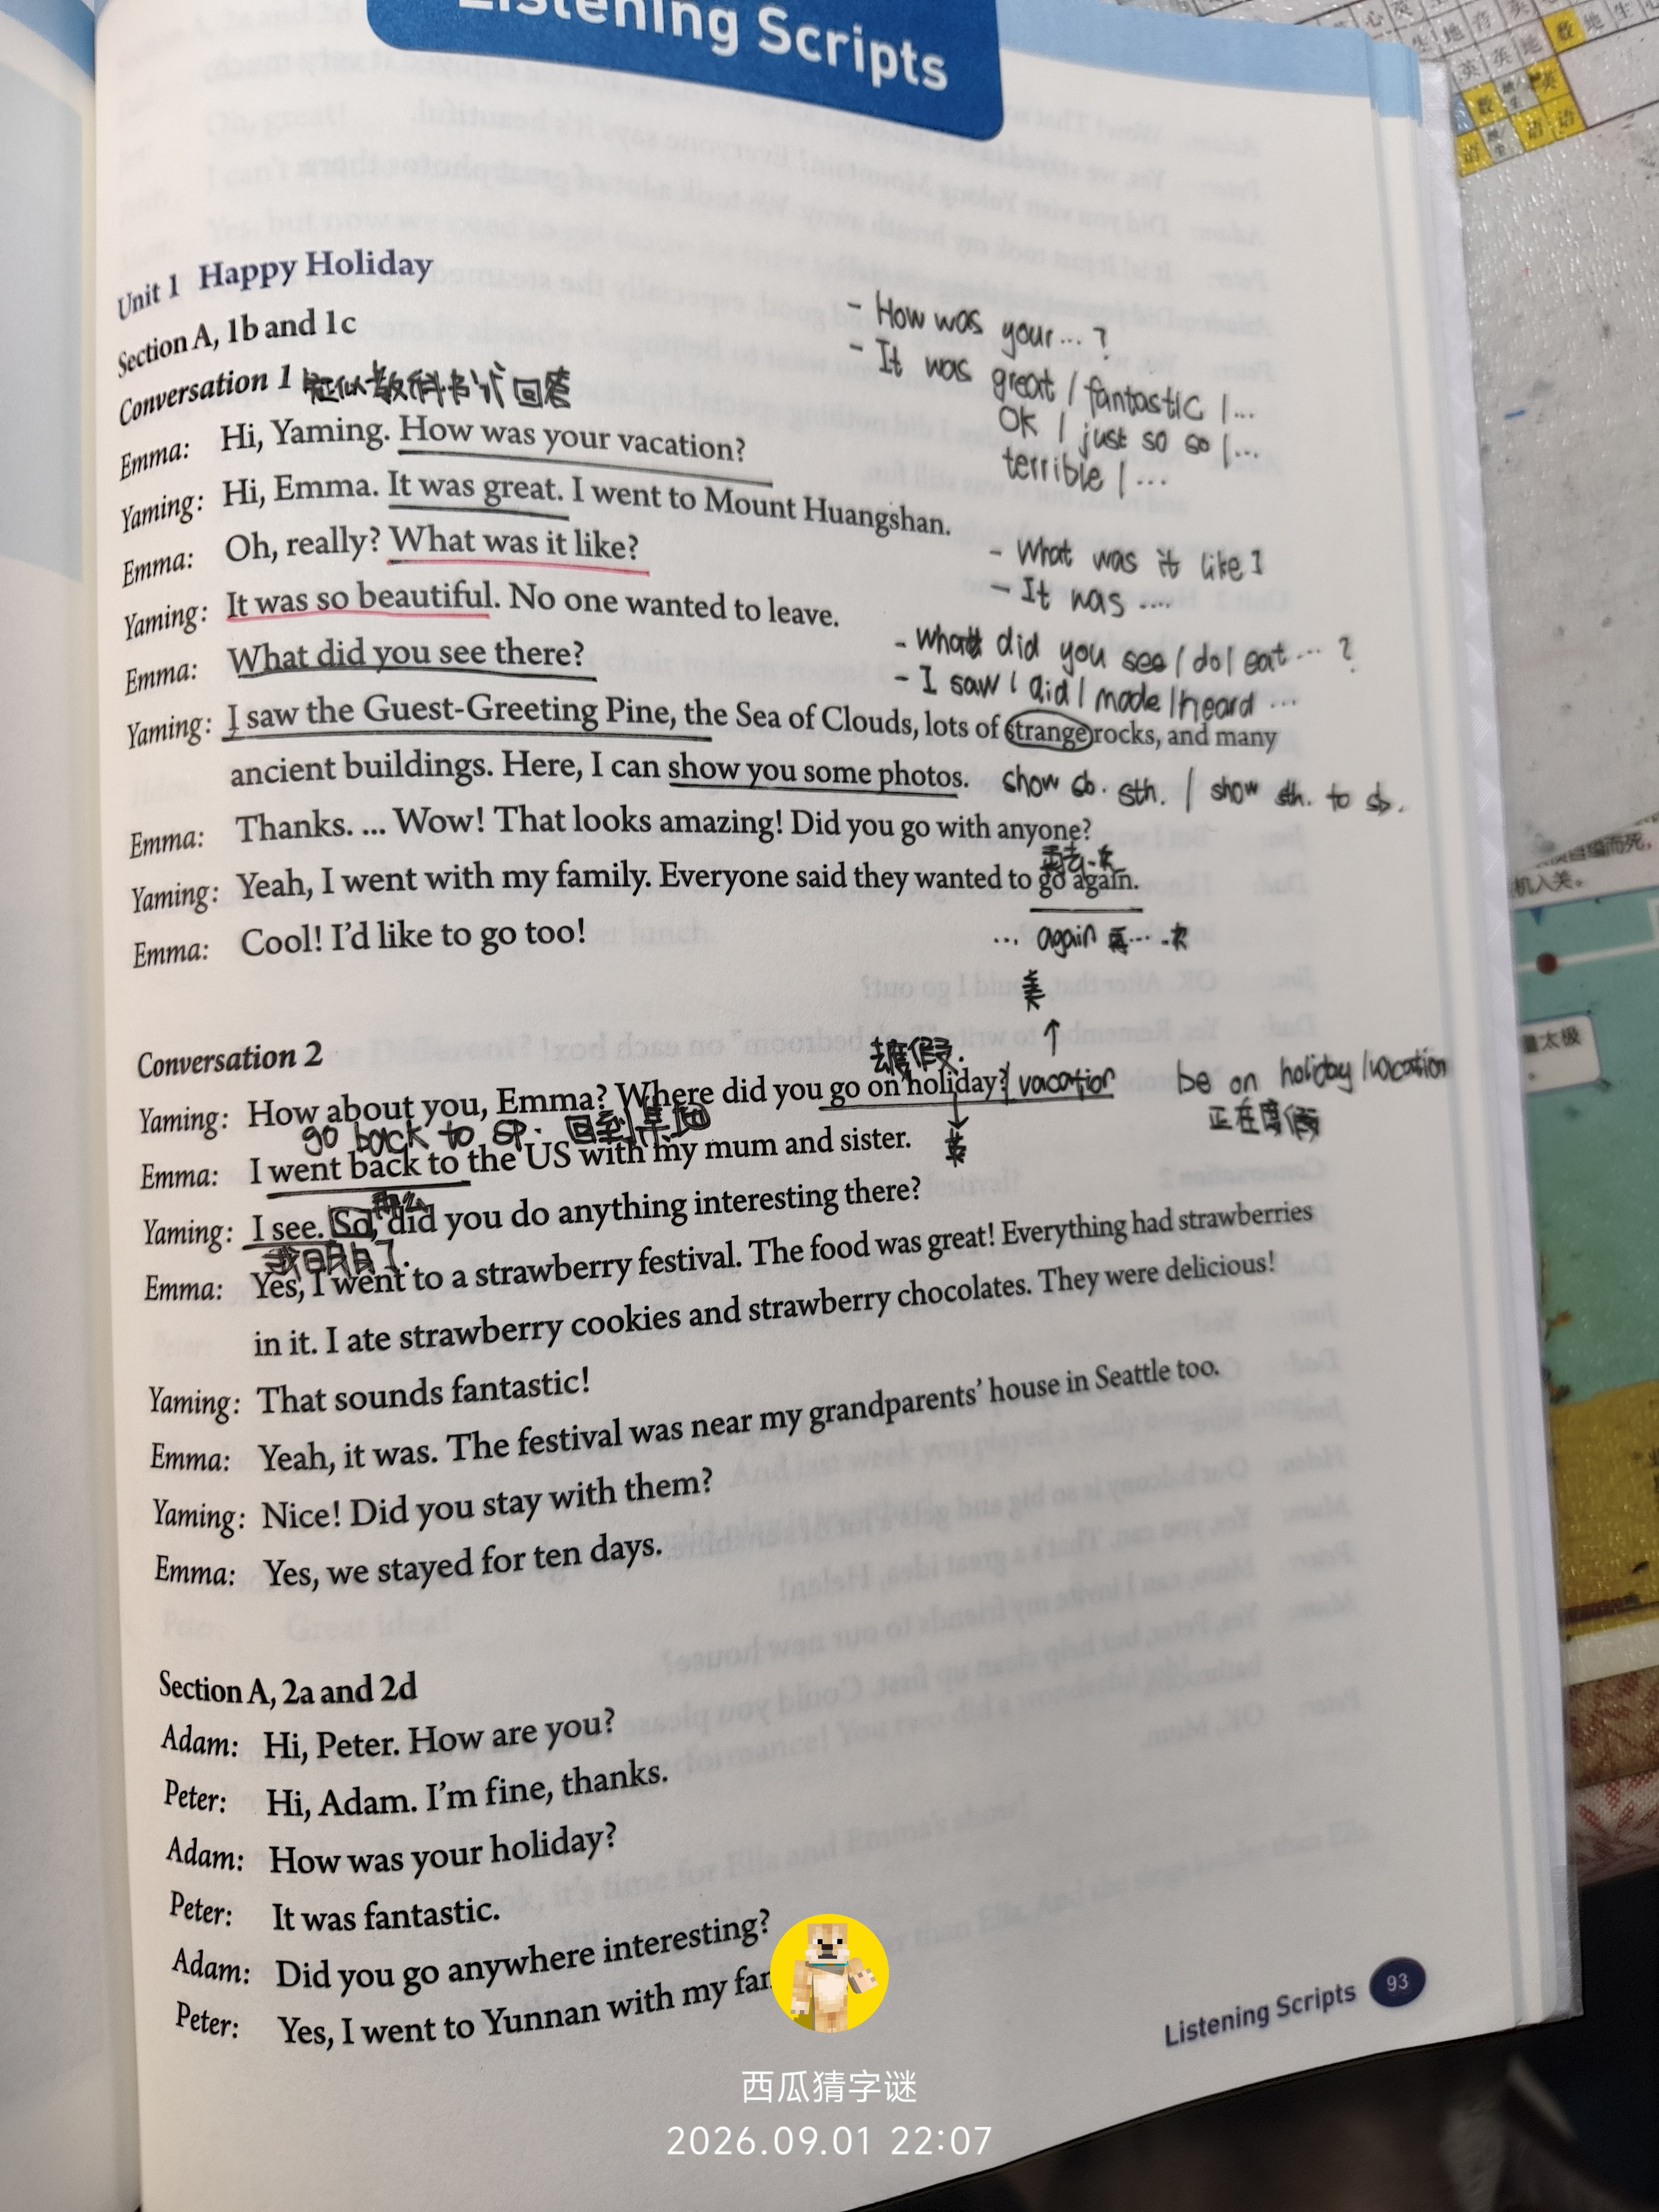 Listening Scripts
Unit 1 Happy Holiday
Section A, 1b and 1c
- How was your ... ?
- It was great / fantastic / ...
OK / just so so / ...
terrible / ...
Conversation 1
回答
Emma: Hi, Yaming. How was your vacation?
Yaming: Hi, Emma. It was great. I went to Mount Huangshan.
Emma: Oh, really? What was it like?
- What was it like?
- It was ....
Yaming: It was so beautiful. No one wanted to leave.
- What did you see / do / eat ... ?
- I saw / did / made / heard ...
Emma: What did you see there?
Yaming: I saw the Guest-Greeting Pine, the Sea of Clouds, lots of strange rocks, and many
ancient buildings. Here, I can show you some photos.
show sb. sth. / show sth. to sb.
Emma: Thanks. ... Wow! That looks amazing! Did you go with anyone?
再去一次
Yaming: Yeah, I went with my family. Everyone said they wanted to go again.
... again 再...一次
Emma: Cool! I'd like to go too!
美
↑
Conversation 2
度假
Yaming: How about you, Emma? Where did you go on holiday? / vacation
be on holiday / vacation
正在度假
英
go back to sp. 回到某地
Emma: I went back to the US with my mum and sister.
那么
Yaming: I see. So, did you do anything interesting there?
我明白了.
Emma: Yes, I went to a strawberry festival. The food was great! Everything had strawberries
in it. I ate strawberry cookies and strawberry chocolates. They were delicious!
Yaming: That sounds fantastic!
Emma: Yeah, it was. The festival was near my grandparents' house in Seattle too.
Yaming: Nice! Did you stay with them?
Emma: Yes, we stayed for ten days.
Section A, 2a and 2d
Adam: Hi, Peter. How are you?
Peter: Hi, Adam. I'm fine, thanks.
Adam: How was your holiday?
Peter: It was fantastic.
Adam: Did you go anywhere interesting?
Peter: Yes, I went to Yunnan with my fam
Listening Scripts 93
西瓜猜字谜
2026.09.01 22:07